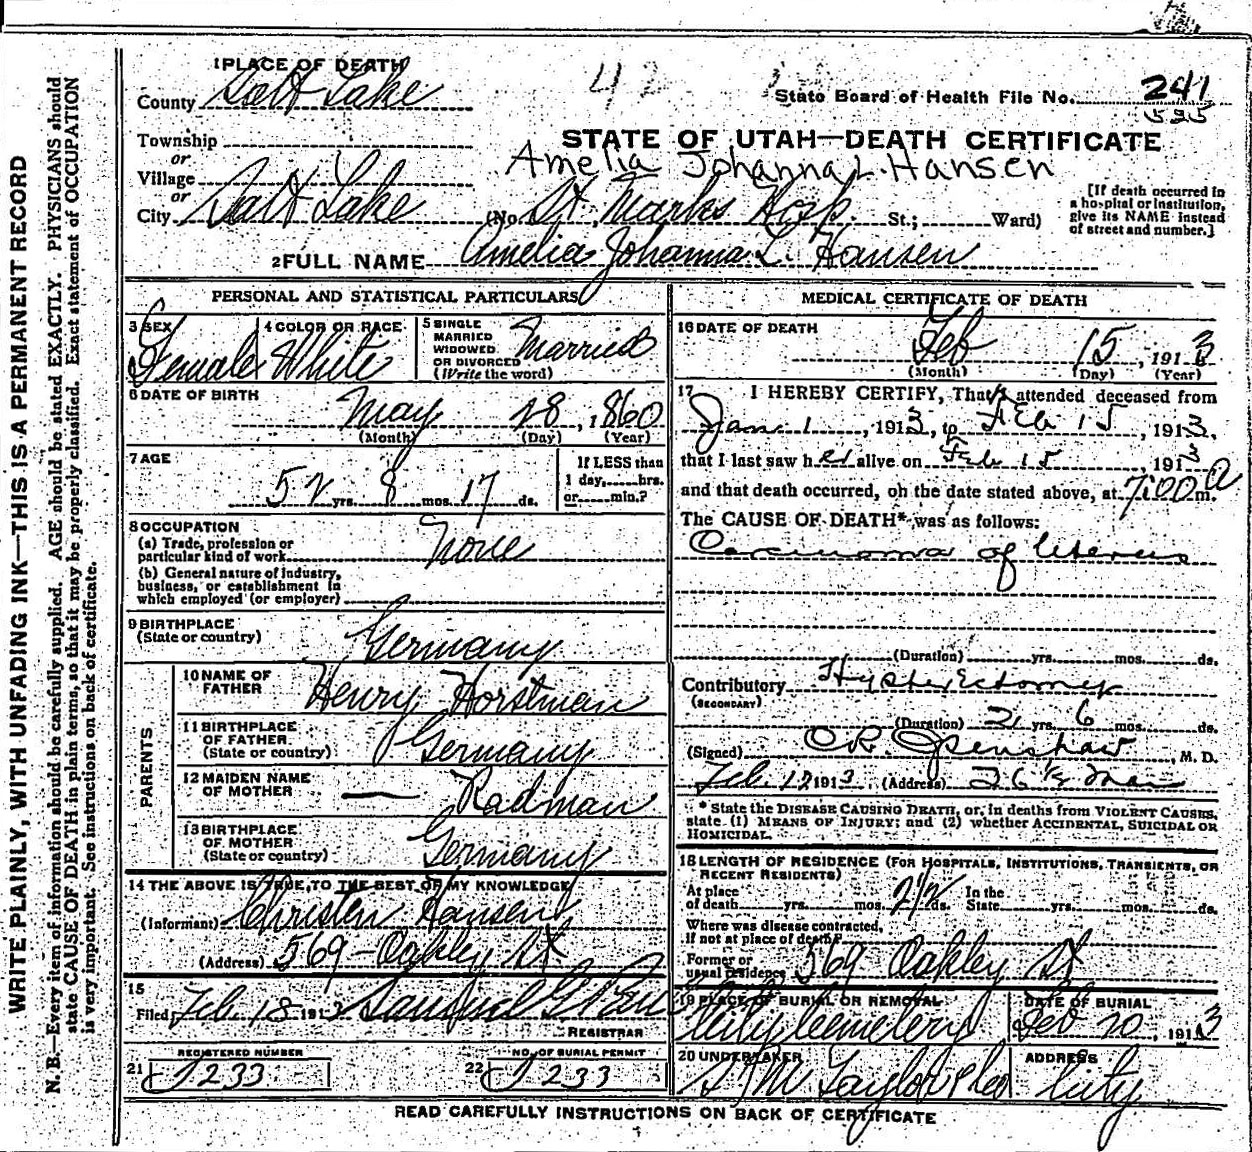 WRITE PLAINLY, WITH UNFADING INK—THIS IS A PERMANENT RECORD
N. B.—Every item of information should be carefully supplied. AGE should be stated EXACTLY. PHYSICIANS should
state CAUSE OF DEATH in plain terms, so that it may be properly classified. Exact statement of OCCUPATION
is very important. See instructions on back of certificate.
1 PLACE OF DEATH
County Salt Lake
42
State Board of Health File No. 241
525
Township
or
Village
or
City Salt Lake
STATE OF UTAH—DEATH CERTIFICATE
Amelia Johanna L. Hansen
(No. St. Marks Hosp. St.; Ward)
[If death occurred in
a hospital or institution,
give its NAME instead
of street and number.]
2 FULL NAME Amelia Johanna L. Hansen
PERSONAL AND STATISTICAL PARTICULARS
3 SEX Female
4 COLOR OR RACE White
5 SINGLE
MARRIED
WIDOWED
OR DIVORCED
(Write the word) Married
6 DATE OF BIRTH
May 28, 1860
(Month) (Day) (Year)
7 AGE
52 yrs. 8 mos. 17 ds.
If LESS than
1 day, hrs.
or min.?
8 OCCUPATION
(a) Trade, profession or
particular kind of work None
(b) General nature of industry,
business, or establishment in
which employed (or employer)
9 BIRTHPLACE
(State or country) Germany
PARENTS
10 NAME OF
FATHER Henry Horstman
11 BIRTHPLACE
OF FATHER
(State or country) Germany
12 MAIDEN NAME
OF MOTHER — Radman
13 BIRTHPLACE
OF MOTHER
(State or country) Germany
14 THE ABOVE IS TRUE, TO THE BEST OF MY KNOWLEDGE
(Informant) Christen Hansen
(Address) 569 - Oakley St
15
Filed Feb. 18 1913 Samuel G.
REGISTRAR
REGISTERED NUMBER
21 J 233
NO. OF BURIAL PERMIT
22 J 233
MEDICAL CERTIFICATE OF DEATH
16 DATE OF DEATH
Feb 15, 1913
(Month) (Day) (Year)
17 I HEREBY CERTIFY, That I attended deceased from
Jan 1, 1913, to Feb 15, 1913,
that I last saw her alive on Feb 15, 1913
and that death occurred, on the date stated above, at 7:00 a m.
The CAUSE OF DEATH* was as follows:
Carcinoma of Uterus
(Duration) yrs. mos. ds.
Contributory Hysterectomy
(SECONDARY)
(Duration) 2 yrs. 6 mos. ds.
(Signed) , M. D.
Feb. 1913 (Address)
* State the DISEASE CAUSING DEATH, or, in deaths from VIOLENT CAUSES,
state (1) MEANS OF INJURY; and (2) whether ACCIDENTAL, SUICIDAL OR
HOMICIDAL.
18 LENGTH OF RESIDENCE (FOR HOSPITALS, INSTITUTIONS, TRANSIENTS, OR
RECENT RESIDENTS)
At place
of death yrs. mos. 2 1/2 ds.
In the
State yrs. mos. ds.
Where was disease contracted,
if not at place of death?
Former or
usual residence 569 Oakley St
19 PLACE OF BURIAL OR REMOVAL
City Cemetery
DATE OF BURIAL
Feb 20, 1913
20 UNDERTAKER
S M Taylor & Co
ADDRESS
City
READ CAREFULLY INSTRUCTIONS ON BACK OF CERTIFICATE